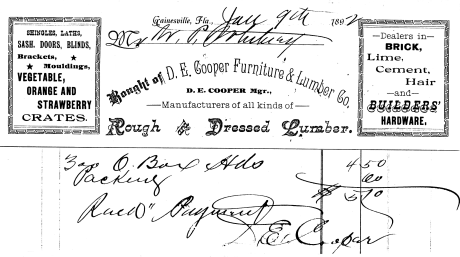 SHINGLES, LATHS,
SASH, DOORS, BLINDS,
Brackets,
Mouldings,
VEGETABLE,
ORANGE AND
STRAWBERRY
CRATES.
Gainesville, Fla., Jany 9th 1892
Mr W. P.
Bought of D. E. Cooper Furniture & Lumber Co.
D. E. COOPER Mgr.,
—Manufacturers of all kinds of—
Rough and Dressed Lumber.
—Dealers in—
BRICK,
Lime,
Cement,
Hair
—and—
BUILDERS'
HARDWARE.
300 O. Box Hds 4 50
Packing 60
$ 5 10
Recd Payment
D E Cooper